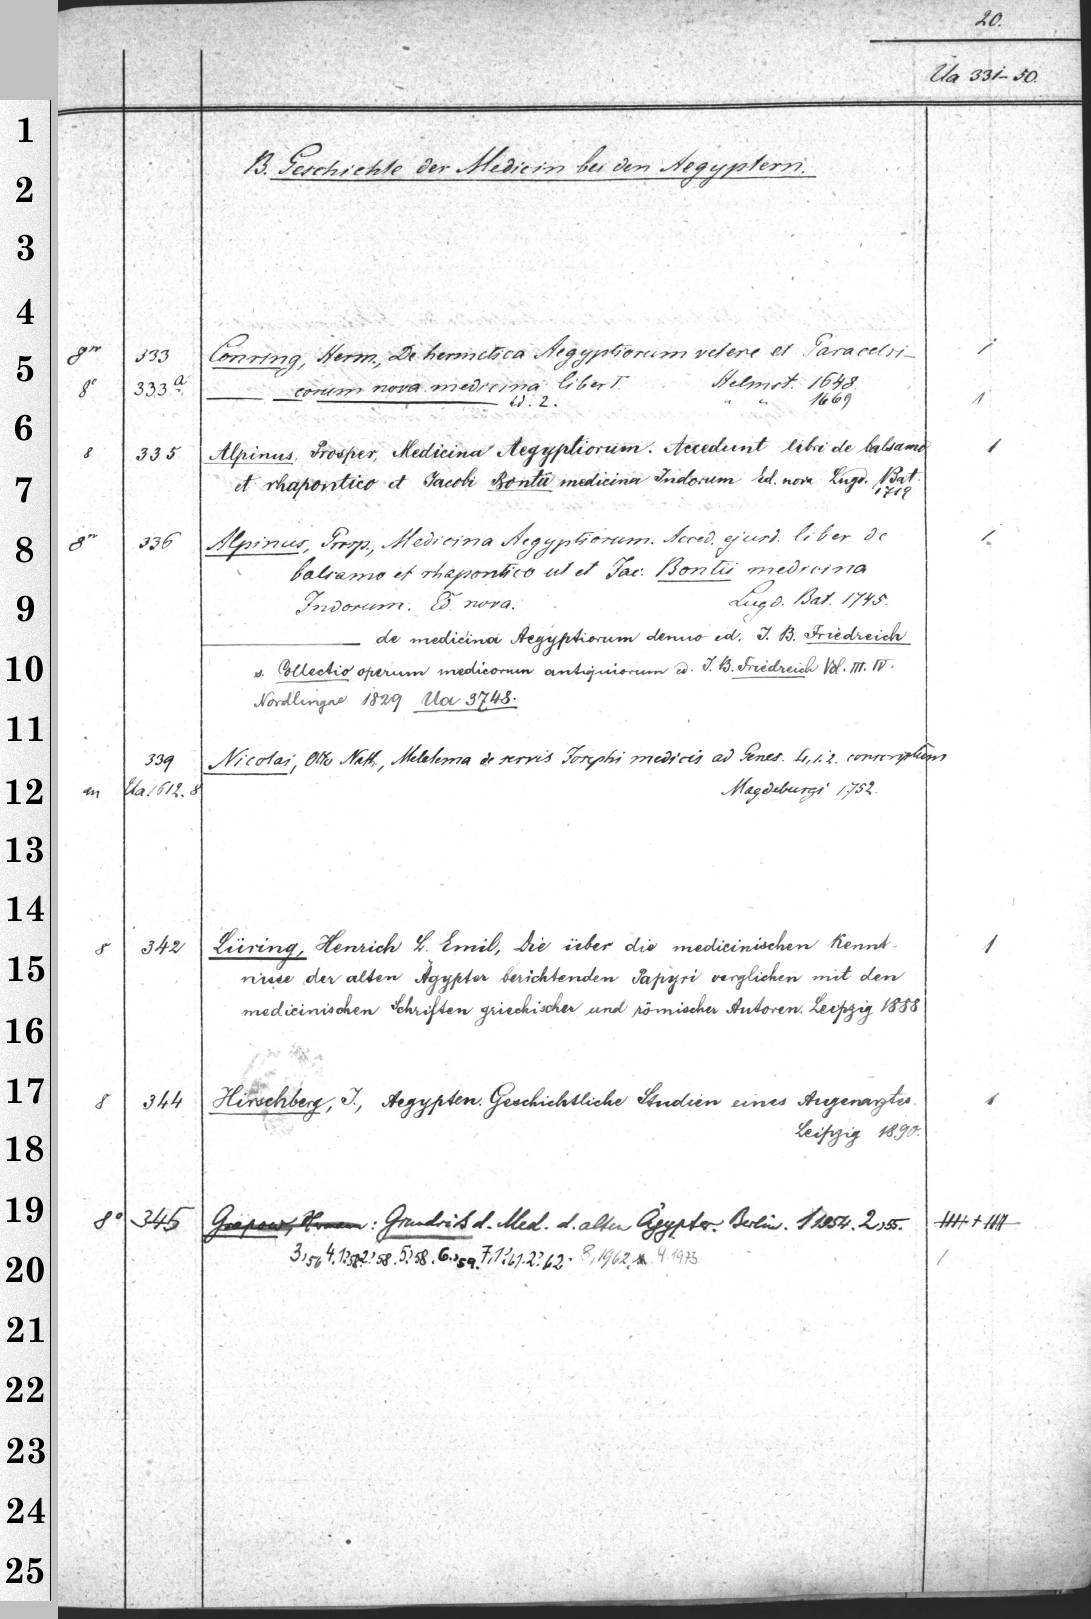 20.
Ua 331-50.
B. Geschichte der Medicin bei den Aegyptern.
8vo 333 Conring, Herm., De hermetica Aegyptiorum vetere et Paracelsi- 1
8° 333a corum nova medicina liber I. Helmst. 1648.
ed. 2. " " 1669 1
8 335 Alpinus, Prosper, Medicina Aegyptiorum. Accedunt libri de balsamo 1
et rhapontico et Jacobi Bontii medicina Indorum Ed. nova Lugd. Bat.
1719
8vo 336 Alpinus, Prosp., Medicina Aegyptiorum. Acced. ejusd. liber de 1
balsamo et rhapontico ut et Jac. Bontii medicina
Indorum. Ed. nova. Lugd. Bat. 1745.
de medicina Aegyptiorum denuo ed. J. B. Friedreich
s. Collectio operum medicorum antiquiorum ed. J. B. Friedreich Vol. III. IV.
Nordlingae 1829 Ua 3748.
339 Nicolai, Otto Nath., Meletema de servis Josephi medicis ad Genes. L, 1. 2. conscriptum
an Ua. 1612. 8 Magdeburgi 1752.
8 342 Lüring, Henrich L. Emil, Die über die medicinischen Kennt- 1
nisse der alten Ägypter berichtenden Papyri verglichen mit den
medicinischen Schriften griechischer und römischer Autoren. Leipzig 1888
8 344 Hirschberg, J., Aegypten. Geschichtliche Studien eines Augenarztes. 1
Leipzig 1890.
8° 345 Grapow, Hermann: Grundriß d. Med. d. alten Ägypter. Berlin. 1 1954. 2,55.
3,56 4,1:58 2:58. 5:58. 6.,59. 7,1:61. 2:62. 8, 1962. 4. 1973
1
2
3
4
5
6
7
8
9
10
11
12
13
14
15
16
17
18
19
20
21
22
23
24
25